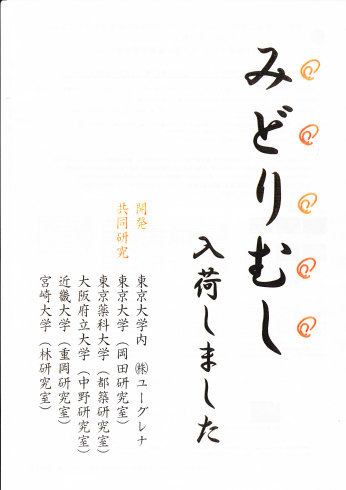 みどりむし
入荷しました
開発　東京大学内　㈱ユーグレナ
共同研究　東京大学（岡田研究室）
東京薬科大学（都築研究室）
大阪府立大学（中野研究室）
近畿大学（重岡研究室）
宮崎大学（林研究室）